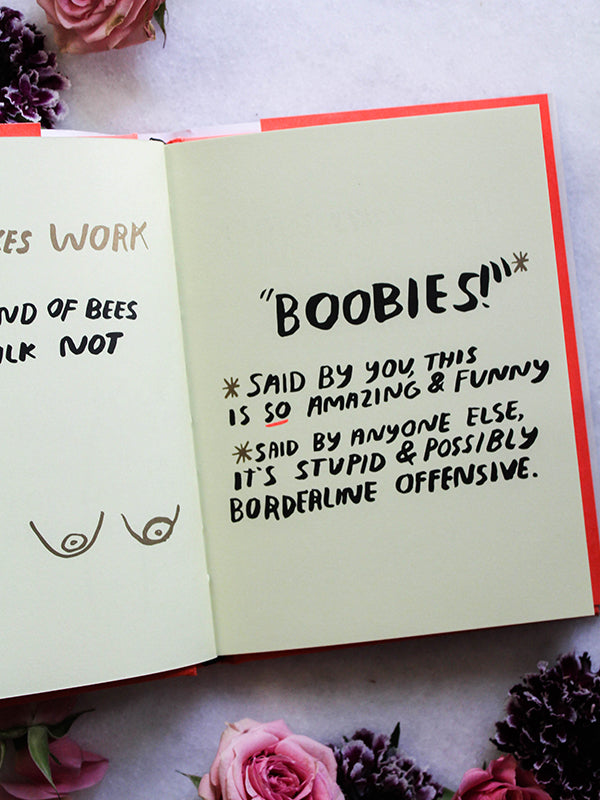 WORK
OF BEES
NOT
"BOOBIES!"*
*SAID BY YOU, THIS
IS SO AMAZING & FUNNY
*SAID BY ANYONE ELSE,
IT'S STUPID & POSSIBLY
BORDERLINE OFFENSIVE.